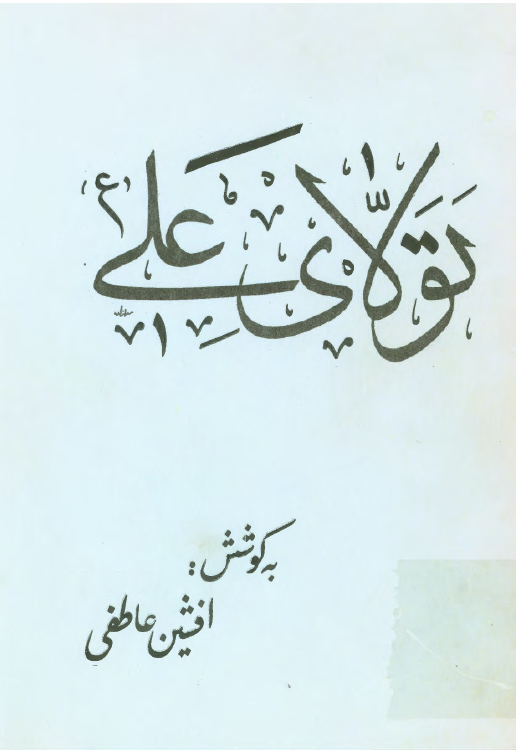 تَوَلّاي عَلي (ع)
به کوشش:
افشین عاطفی